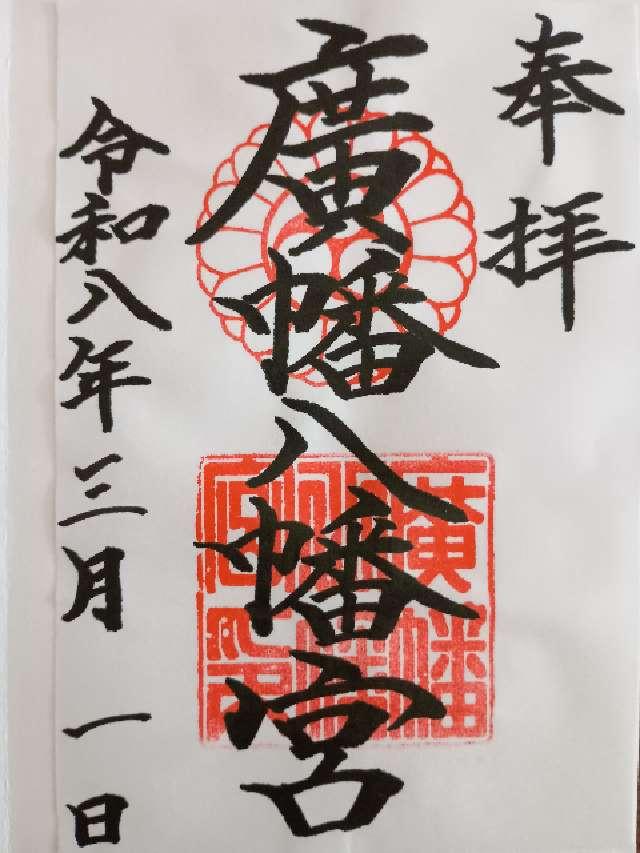 奉拝
廣幡八幡宮
廣幡
八幡
宮印
令和八年三月一日